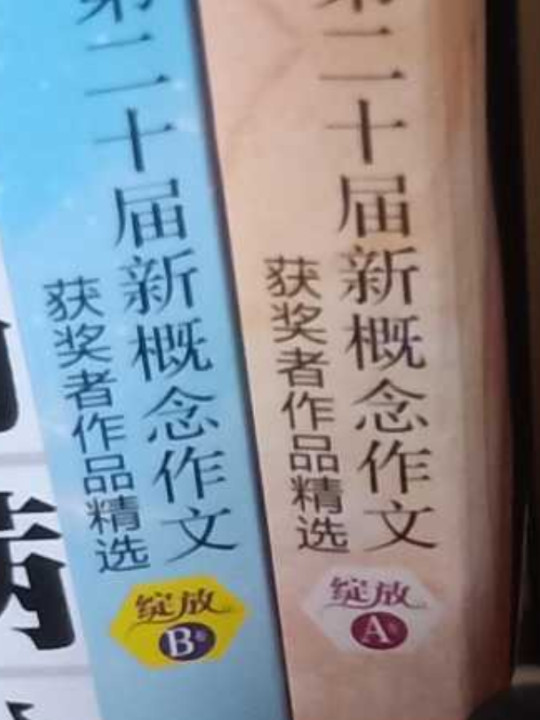 第二十届新概念作文
获奖者作品精选
绽放
B卷
第二十届新概念作文
获奖者作品精选
绽放
A卷